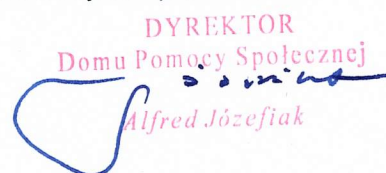 DYREKTOR
Domu Pomocy Społecznej
Alfred Józefiak